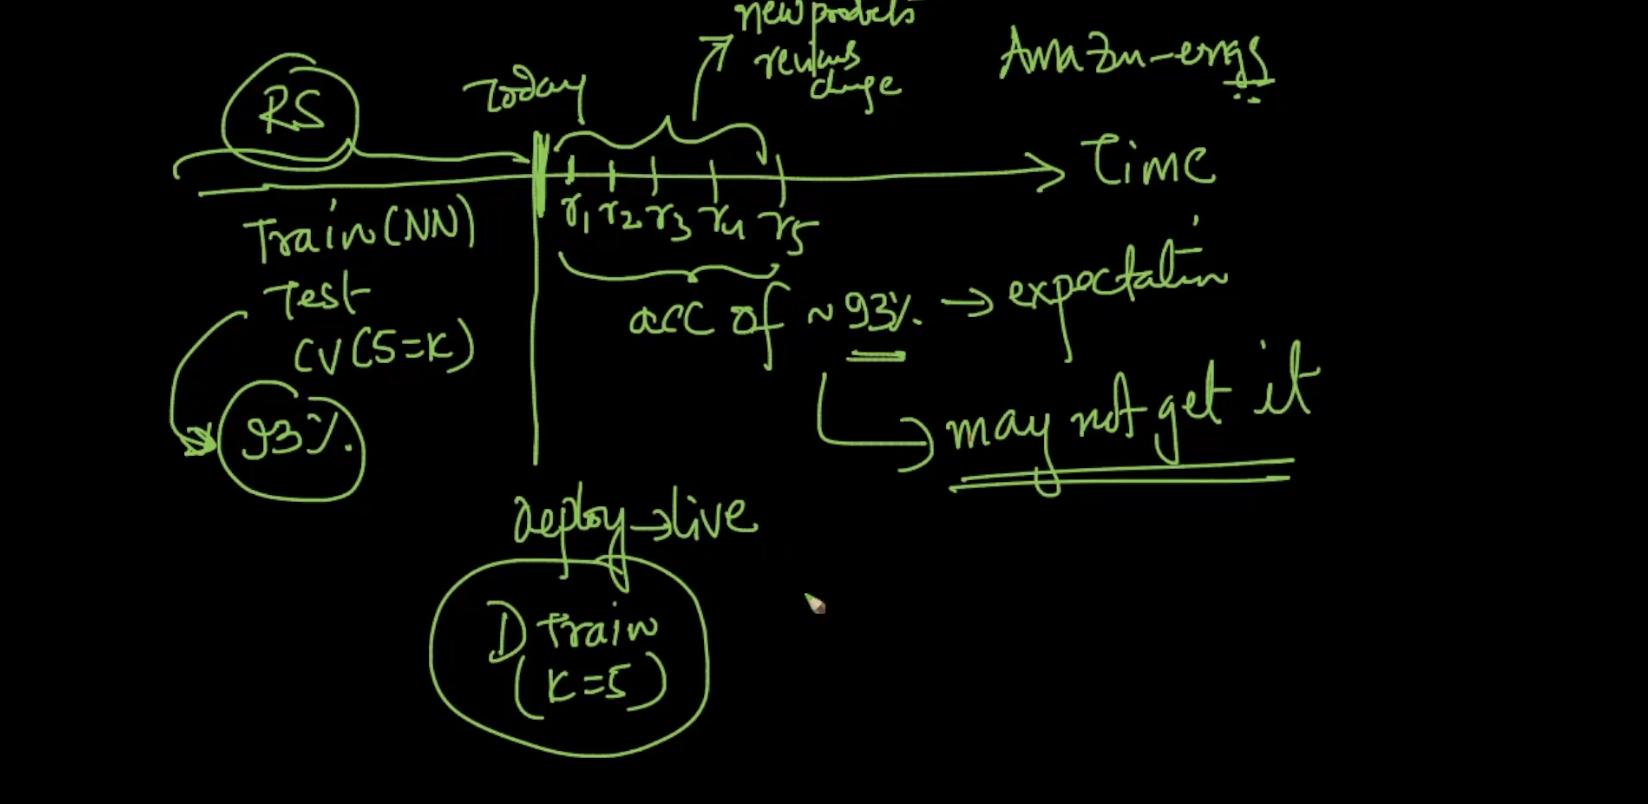 new products
reviews
change
Amazon-engs
RS
Today
Time
r1 r2 r3 r4 r5
Train (NN)
Test
CV (5=K)
93%.
acc of ~ 93%. → expectation
may not get it
deploy → live
D Train
(K=5)